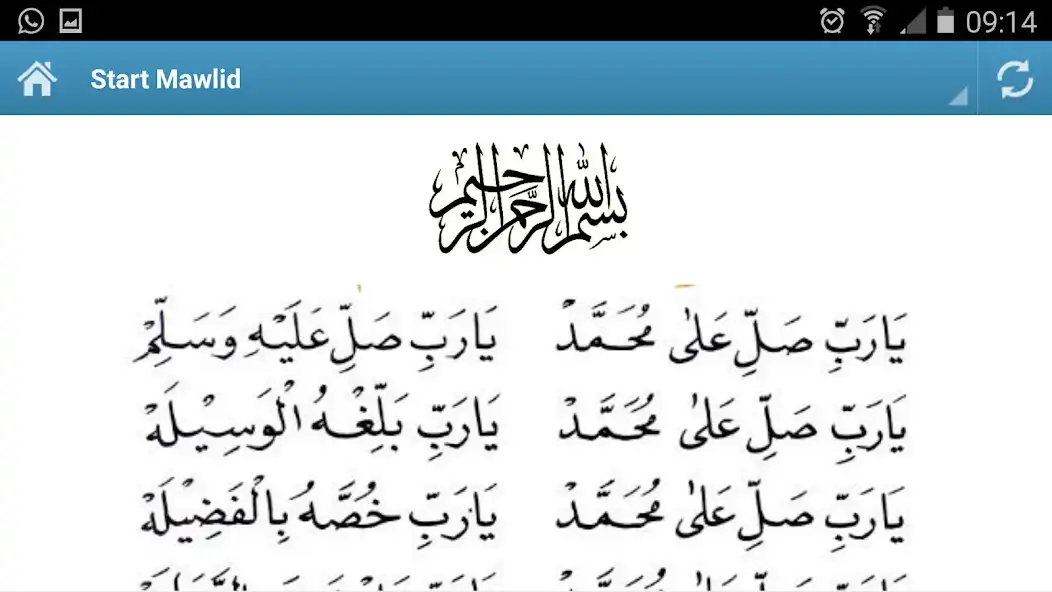 09:14
Start Mawlid
بسم الله الرحمن الرحيم
يَارَبِّ صَلِّ عَلٰى مُحَمَّدْ يَارَبِّ صَلِّ عَلَيْهِ وَسَلِّمْ
يَارَبِّ صَلِّ عَلٰى مُحَمَّدْ يَارَبِّ بَلِّغْهُ الْوَسِيْلَهْ
يَارَبِّ صَلِّ عَلٰى مُحَمَّدْ يَارَبِّ خُصَّهُ بِالْفَضِيْلَهْ